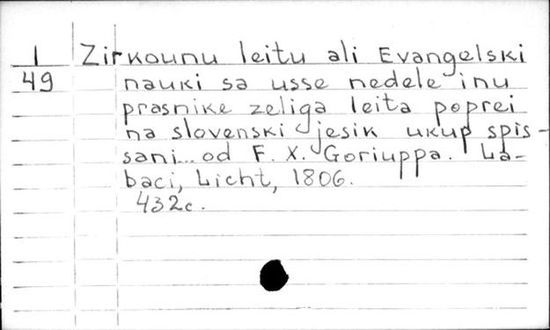 1 Zirkounu leitu ali Evangelski
49 nauki sa usse nedele inu
prasnike zeliga leita poprei
na slovenski jesik ukup spis-
sani... od F. X. Goriuppa. La-
baci, Licht, 1806.
432c.